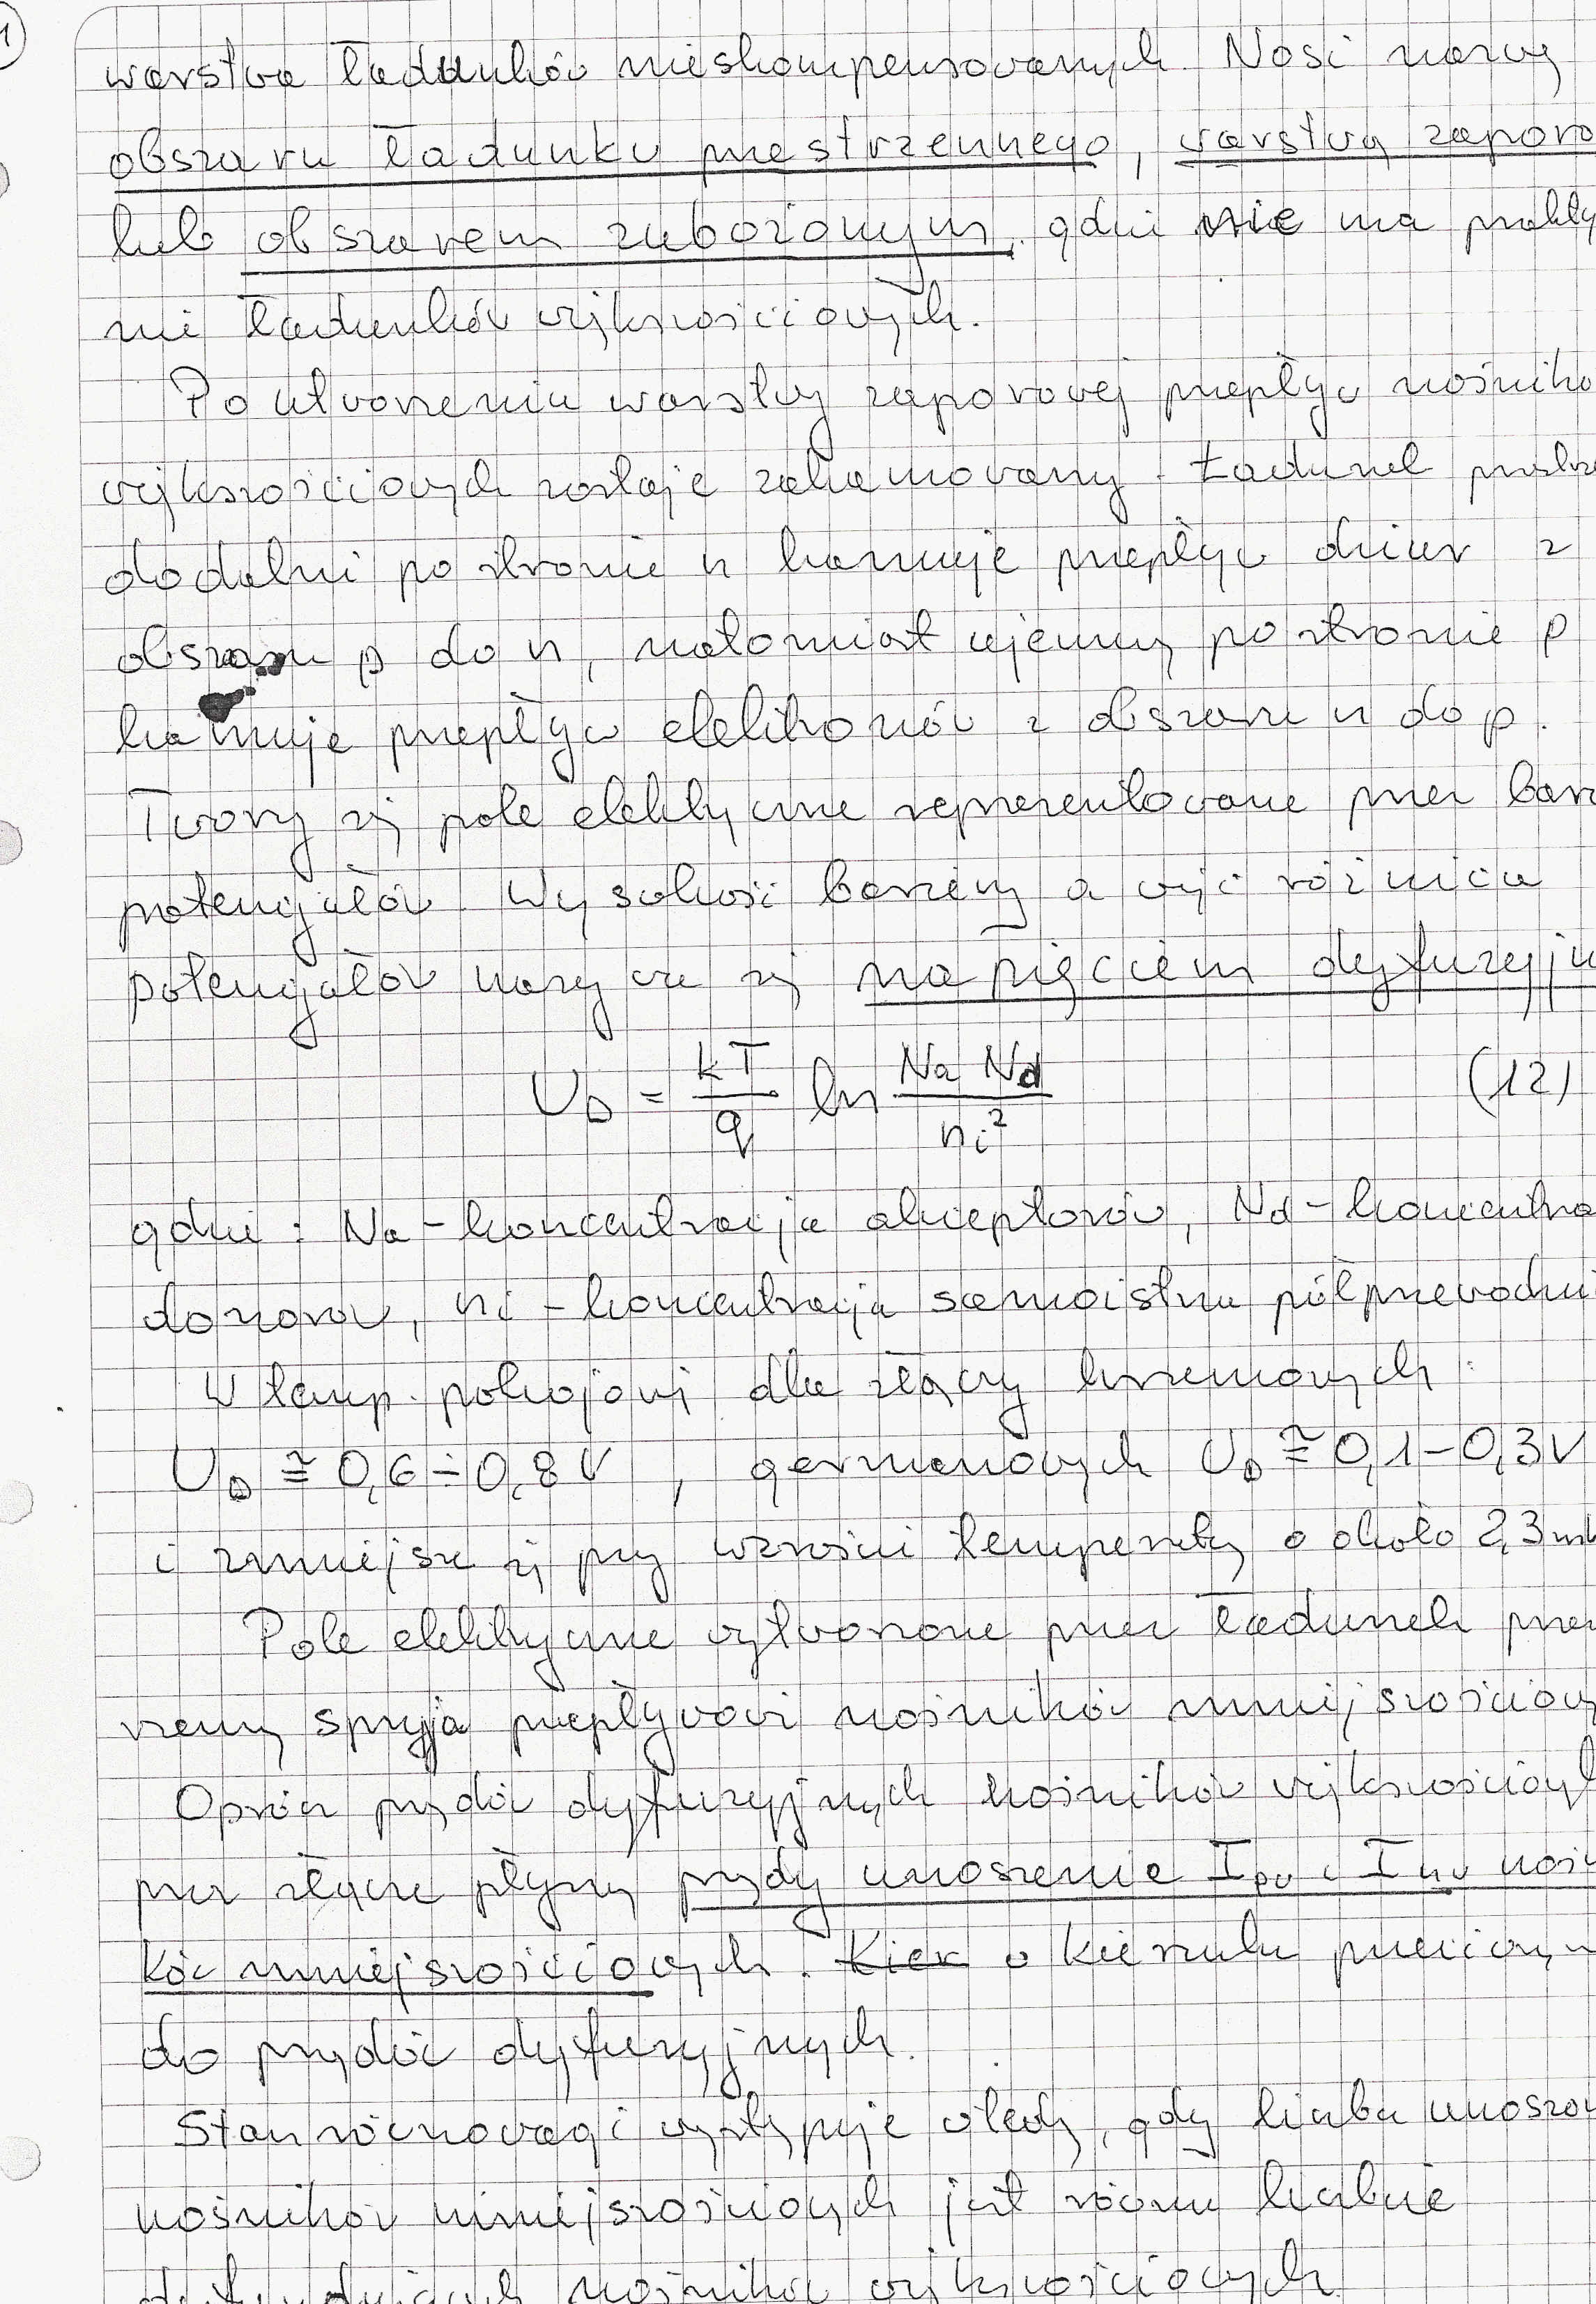 1
warstwa ładunków nieskompensowanych. Nosi nazwę
obszaru ładunku przestrzennego, warstwą zaporo
lub obszarem zubożonym, gdzie nie ma prakty
nie ładunków większościowych.
Po utworzeniu warstwy zaporowej przepływ nośnikó
większościowych zostaje zahamowany. Ładunek przestrze
dodatni po stronie n hamuje przepływ dziur z
obszaru p do n, natomiast ujemny po stronie p
hamuje przepływ elektronów z obszaru n do p.
Tworzy się pole elektryczne reprezentowane przez bar
potencjałów. Wysokość bariery a więc różnica
potencjałów nazywa się napięciem dyfuzyjn
U_D = kT/q ln Na Nd/ni² (12)
gdzie: Na - koncentracja akceptorów, Nd - koncentra
donorów, ni - koncentracja samoistna półprzewodni
W temp. pokojowej dla złączy krzemowych:
U_D ≅ 0,6÷0,8 V, germanowych U_D ≅ 0,1-0,3V
i zmniejsza się przy wzroście temperatury o około 2,3 m
Pole elektryczne wytworzone przez ładunek prze
rzenny sprzyja przepływowi nośników mniejszościowy
Oprócz prądów dyfuzyjnych nośników większościowych
przez złącze płyną prądy unoszenie Ipu i Inu nośni
ków mniejszościowych. Kier o kierunku przeciwn
do prądów dyfuzyjnych.
Stan równowagi występuje wtedy, gdy liczba unoszon
nośników mniejszościowych jest równa liczbie
dyfundujących nośników większościowych.